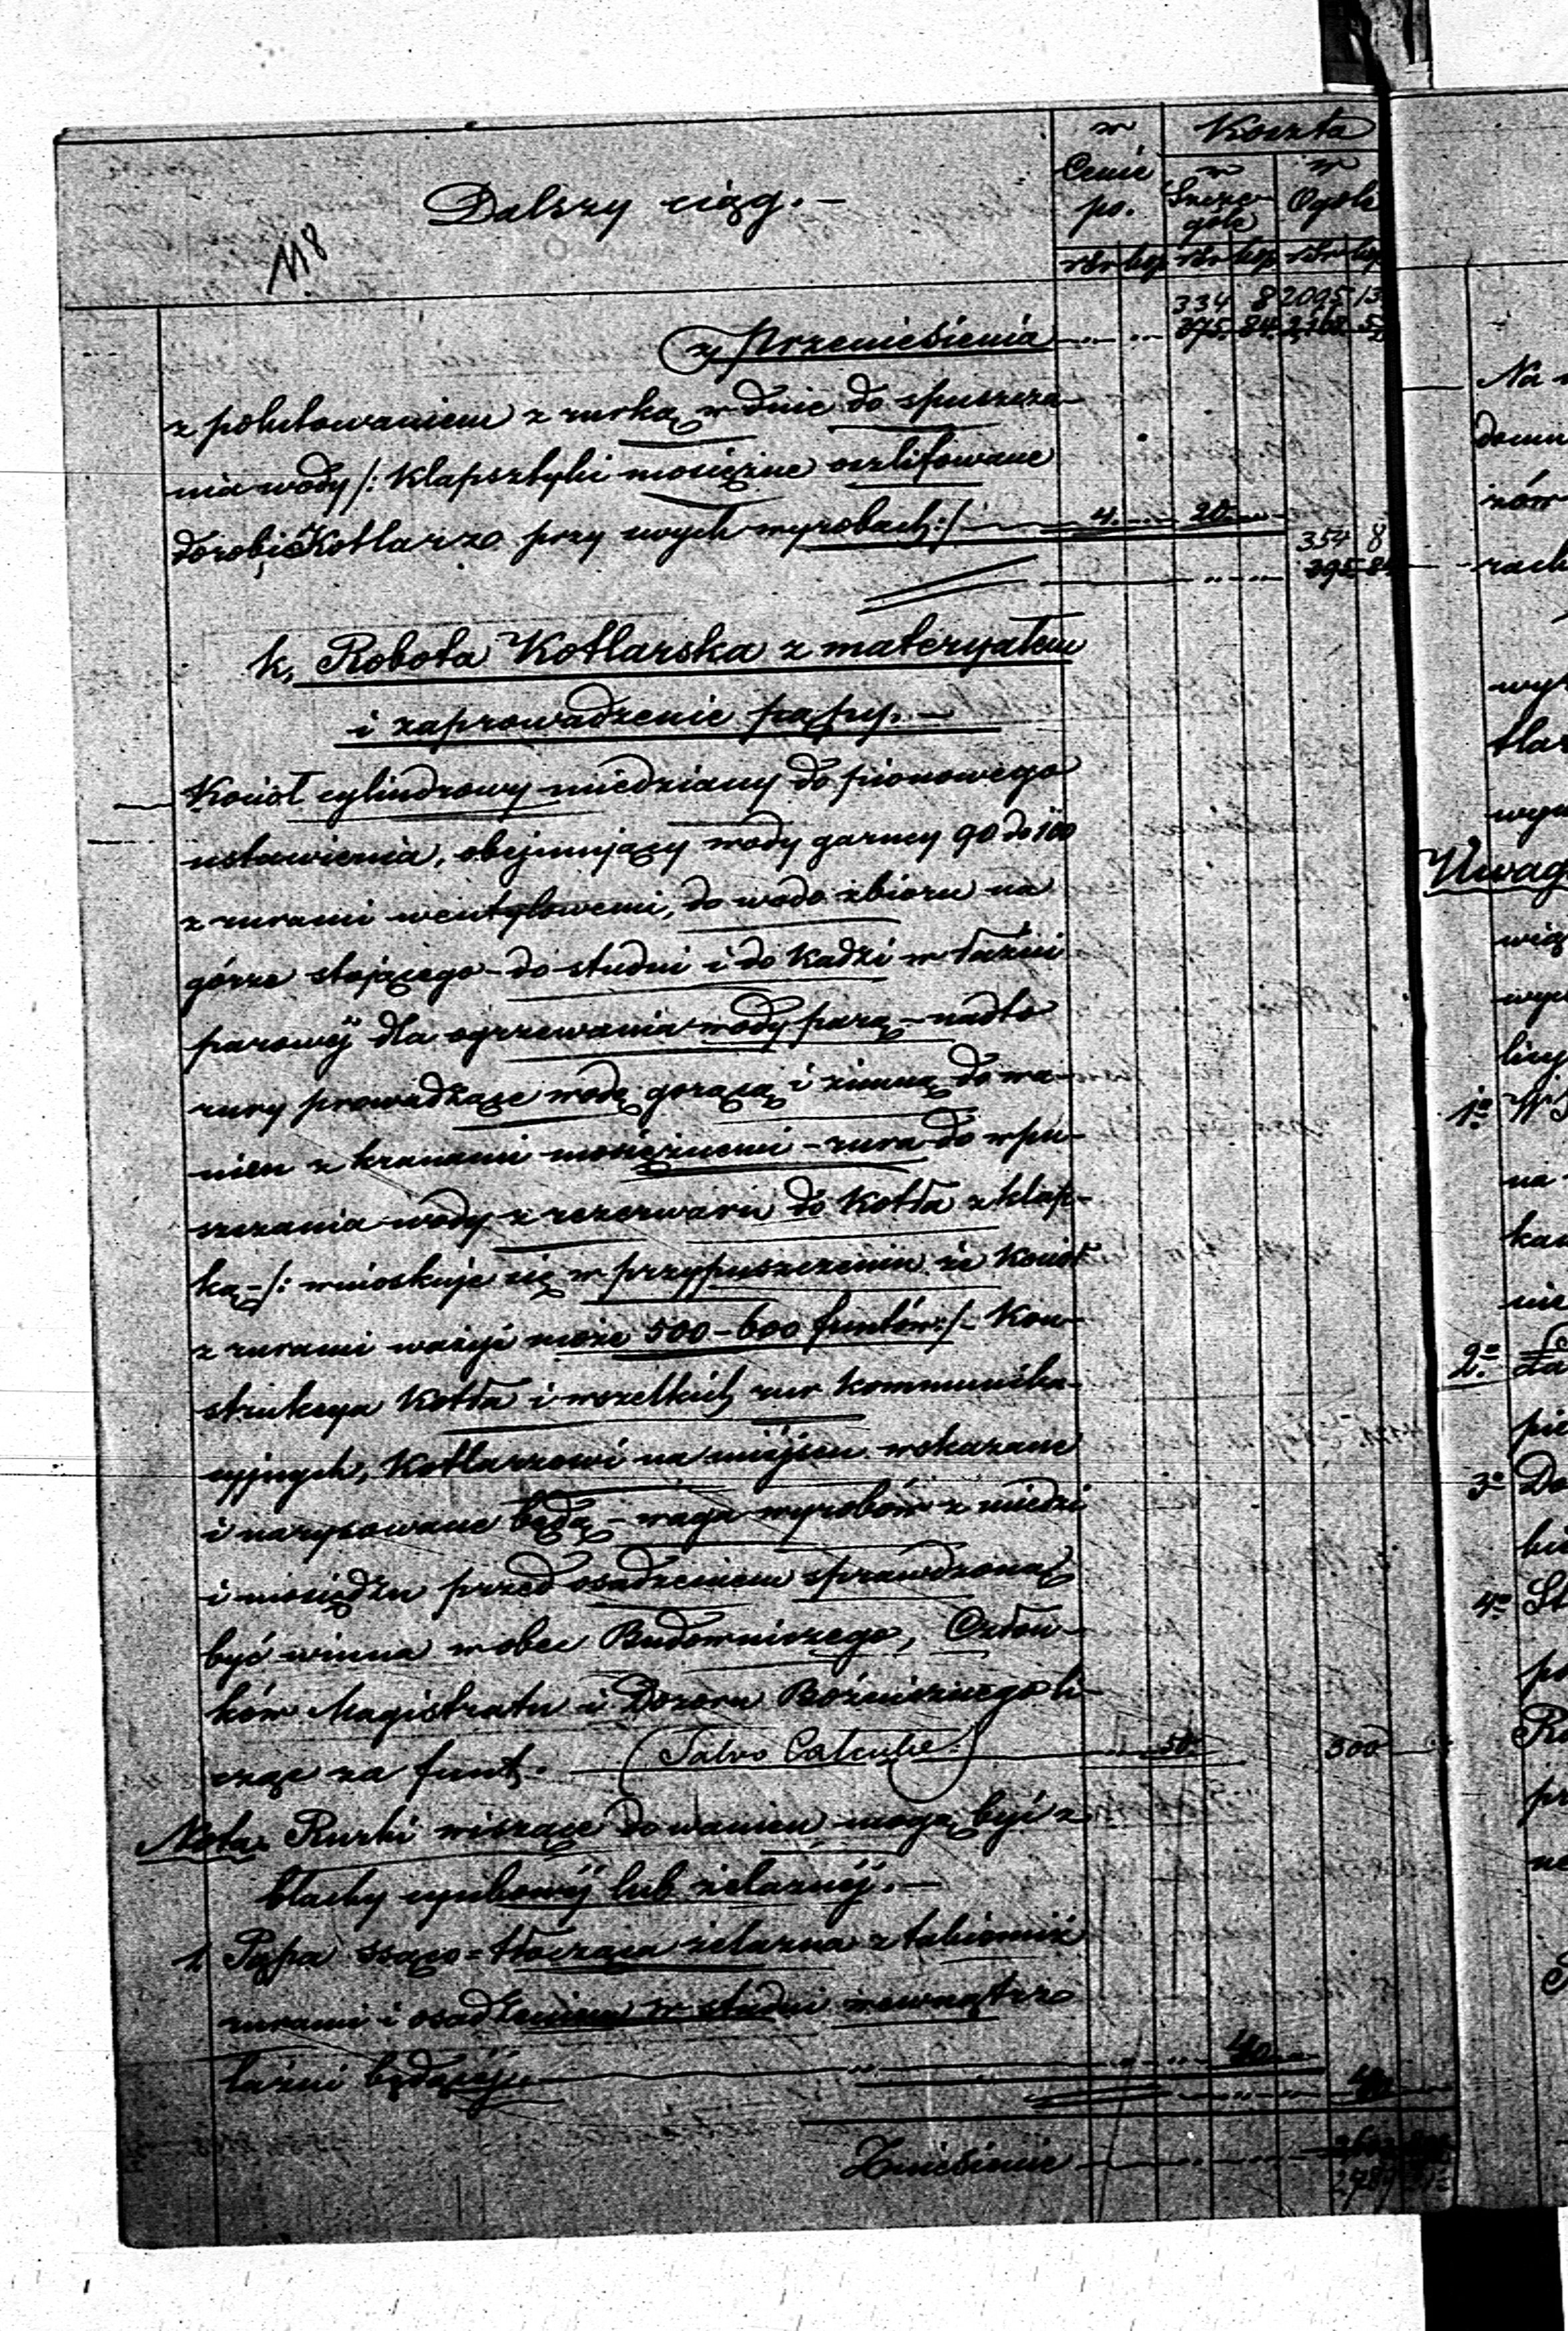 w
Cenie
po.
Koszta
w
Szcze-
góle
w
Ogóle
rsr kop rsr kop rsr kop
Dalszy ciąg. –
118
334 8 2095 13
z Przeniesienia 375. 84.
z polutowaniem z rurką w dnie do spuszcza-
nia wody /: Klapsztyki mosiężne oszlifowane
dorobić Kotlarz przy swych wyrobach :/ 4. 20.
354 8
395 84
k, Robota Kotlarska z materyałem
i zaprowadzenie pąpy. –
Kocioł cylindrowy miedziany do pionowego
ustawienia, obejmujący wody garncy 90 do 100
z rurami wentylowemi, do wodo zbioru na
górze stojącego – do studni i do Kadzi w łaźni
parowéj dla ogrzewania wody parą – nadto
rury prowadzące wodę gorącą i zimną do wa-
nien z kranami mosiężnemi – rura do wpu-
szczania wody z rezerwaru do Kotła z klap-
ką – /: wnioskuje się w przypuszczeniu że Kocioł
z rurami ważyć może 500 – 600 funtów :/ – Kon-
strukcya Kotła i wszelkich rur kommunika-
cyjnych, Kotlarzowi na miejscu wskazane
i narysowane będą – waga wyrobów z miedzi
i mosiądzu przed osadzeniem sprawdzoną
być winna wobec Budowniczego, Człon-
ków Magistratu i Dozoru Bóźniczego li-
cząc za funt. (Salvo Calculo.) 50. 300
Nota. Rurki wiszące do wanien mogą być z
blachy cynkowéj lub żelaznéj. –
1 Pąpa ssąco = tłocząca żelazna z takiemiż
rurami i osadzeniem w studni wewnątrz
łaźni będącéj. 40
40
Zniesienie
2789